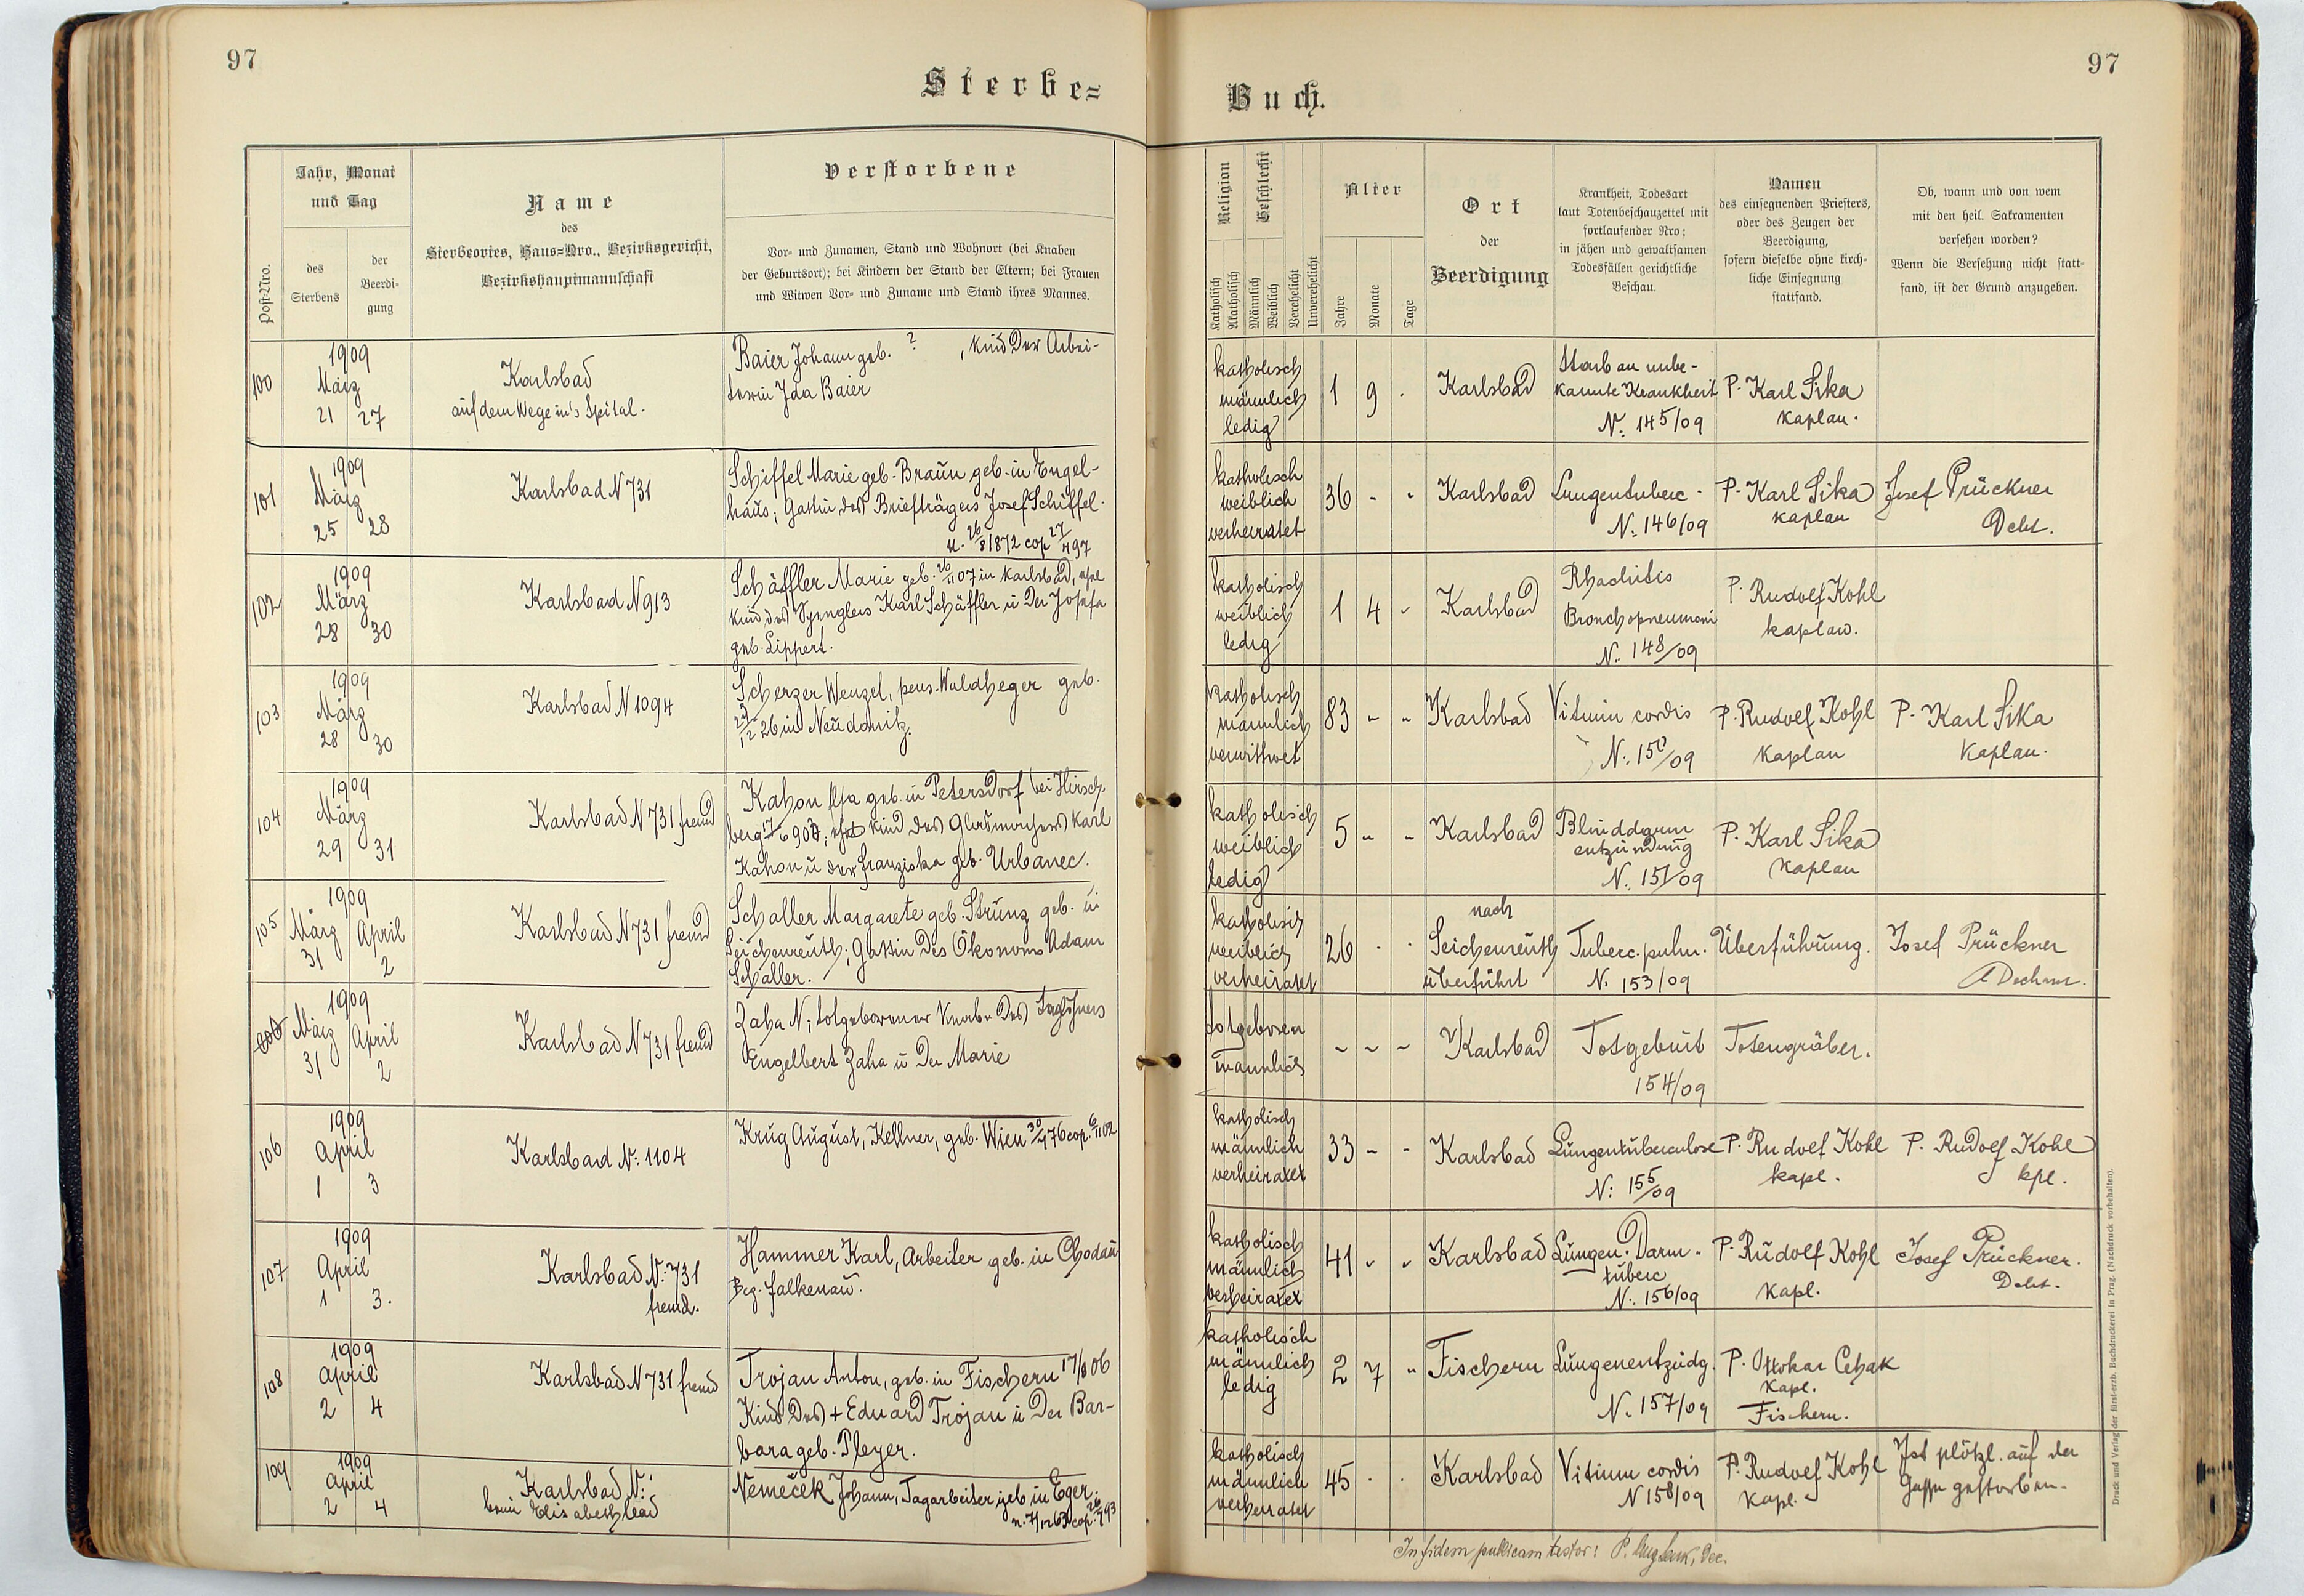 97
97
Sterbe=
Buch.
Post-Nro.
Jahr, Monat
und Tag
des
Sterbens
der
Beerdi-
gung
Name
des
Sterbeortes, Haus=Nro., Bezirksgericht,
Bezirkshauptmannschaft
Verstorbene
Vor- und Zunamen, Stand und Wohnort (bei Knaben
der Geburtsort); bei Kindern der Stand der Eltern; bei Frauen
und Witwen Vor- und Zuname und Stand ihres Mannes.
Religion
Katholisch
Akatholisch
Geschlecht
Männlich
Weiblich
Verehelicht
Unverehelicht
Alter
Jahre
Monate
Tage
Ort
der
Beerdigung
Krankheit, Todesart
laut Totenbeschauzettel mit
fortlaufender Nro;
in jähen und gewaltsamen
Todesfällen gerichtliche
Beschau.
Namen
des einsegnenden Priesters,
oder des Zeugen der
Beerdigung,
sofern dieselbe ohne kirch-
liche Einsegnung
stattfand.
Ob, wann und von wem
mit den heil. Sakramenten
versehen worden?
Wenn die Versehung nicht statt-
fand, ist der Grund anzugeben.
100
1909
März
21 27
Karlsbad
auf dem Wege in's Spital.
Baier Johann geb. ? , Kind der Arbei-
terin Ida Baier
katholisch
männlich
ledig
1 9 .
Karlsbad
Starb an unbe-
kannte Krankheit
N: 145/09
P. Karl Sika
Kaplan.
101
1909
März
25 28
Karlsbad N 731
Schiffel Marie geb. Braun geb. in Engel-
haus; Gattin des Briefträgers Josef Schiffel.
n. 26/8 1872 cop 27/4 97
katholisch
weiblich
verheiratet
36 - -
Karlsbad
Lungentuberc.
N: 146/09
P. Karl Sika
Kaplan
Josef Prückner
Decht.
102
1909
März
28 30
Karlsbad N 913
Schäffler Marie geb. 26/11 07 in Karlsbad, ehel
Kind des Spenglers Karl Schäffler u der Josefa
geb. Lippert.
katholisch
weiblich
ledig
1 4 -
Karlsbad
Rhachitis
Bronchopneumoni
N. 148/09
P. Rudolf Kohl
kaplan.
103
1909
März
28 30
Karlsbad N 1094
Scherzer Wenzel, pens. Waldheger geb.
26 in Neudonitz.
katholisch
männlich
verwittwet
83 - -
Karlsbad
Vitium cordis
N: 150/09
P. Rudolf Kohl
Kaplan
P. Karl Sika
Kaplan.
104
1909
März
29 31
Karlsbad N 731 fremd
Kahon geb. in Petersdorf bei Hirsch-
berg Kind des Karl
Kahon u der Franziska geb. Urbanec.
katholisch
weiblich
ledig
5 - -
Karlsbad
Blinddarm
entzündung
N. 151/09
P. Karl Sika
Kaplan
105
1909
März April
31 2
Karlsbad N 731 fremd
Schaller Margarete geb. Strunz geb. in
Seichenreuth; Gattin des Ökonoms Adam
Schaller.
katholisch
weiblich
verheiratet
26 . .
nach
Seichenreuth
überführt
Tuberc. pulm.
N. 153/09
Überführung.
Josef Prückner
Dechant.
1909
März April
31 2
Karlsbad N 731 fremd
Zaha N; totgeborener Knabe des Taglöhners
Engelbert Zaha u der Marie
totgeboren
männlich
- - -
Karlsbad
Totgeburt
154/09
Totengräber.
106
1909
April
1 3
Karlsbad N: 1104
Krug August, Kellner, geb. Wien 30/4 76 cop. 6/11 02
katholisch
männlich
verheiratet
33 - -
Karlsbad
Lungentuberculose
N: 155/09
P. Rudolf Kohl
kapl.
P. Rudolf Kohl
kpl.
107
1909
April
1 3.
Karlsbad N: 731
fremd.
Hammer Karl, Arbeiter geb. in Chodau
Bzg. Falkenau.
katholisch
männlich
verheiratet
41 - -
Karlsbad
Lungen. Darm-
tuberc
N: 156/09
P. Rudolf Kohl
Kapl.
Josef Prückner.
Decht.
108
1909
April
2 4
Karlsbad N 731 fremd
Trojan Anton, geb. in Fischern 17/8 06
Kind des + Eduard Trojan u der Bar-
bara geb. Pleyer.
katholisch
männlich
ledig
2 7 "
Fischern
Lungenentzündg.
N. 157/09
P. Ottokar Cehak
Kapl.
Fischern.
109
1909
April
2 4
Karlsbad N:
beim Elisabethbad
Němeček Johann, Tagarbeiter geb in Eger.
n. 7/12 63 cop. 26/4 93
katholisch
männlich
verheiratet
45 . .
Karlsbad
Vitium cordis
N 158/09
P. Rudolf Kohl
Kapl.
Ist plötzl. auf der
Gasse gestorben.
In fidem publicam testor!
Druck und Verlag der fürst-erzb. Buchdruckerei in Prag. (Nachdruck vorbehalten).